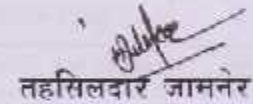 तहसिलदार जामनेर